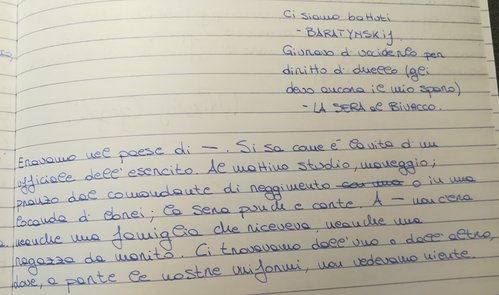 Ci siamo battuti
- BARATYNSKIJ.
Giuravo d'ucciderlo per
diritto di duello (gli
devo ancora il mio sparo)
- LA SERA al BIVACCO.
Eravamo nel paese di —. Si sa come è la vita d'un
ufficiale dell'esercito. Al mattino studio, maneggio;
pranzo dal comandante di reggimento o in una
locanda d'ebrei; la sera punch e carte. A — non c'era
neanche una famiglia che riceveva, neanche una
ragazza da marito. Ci trovavamo dall'uno o dall'altro,
dove, a parte le nostre uniformi, non vedevamo niente.